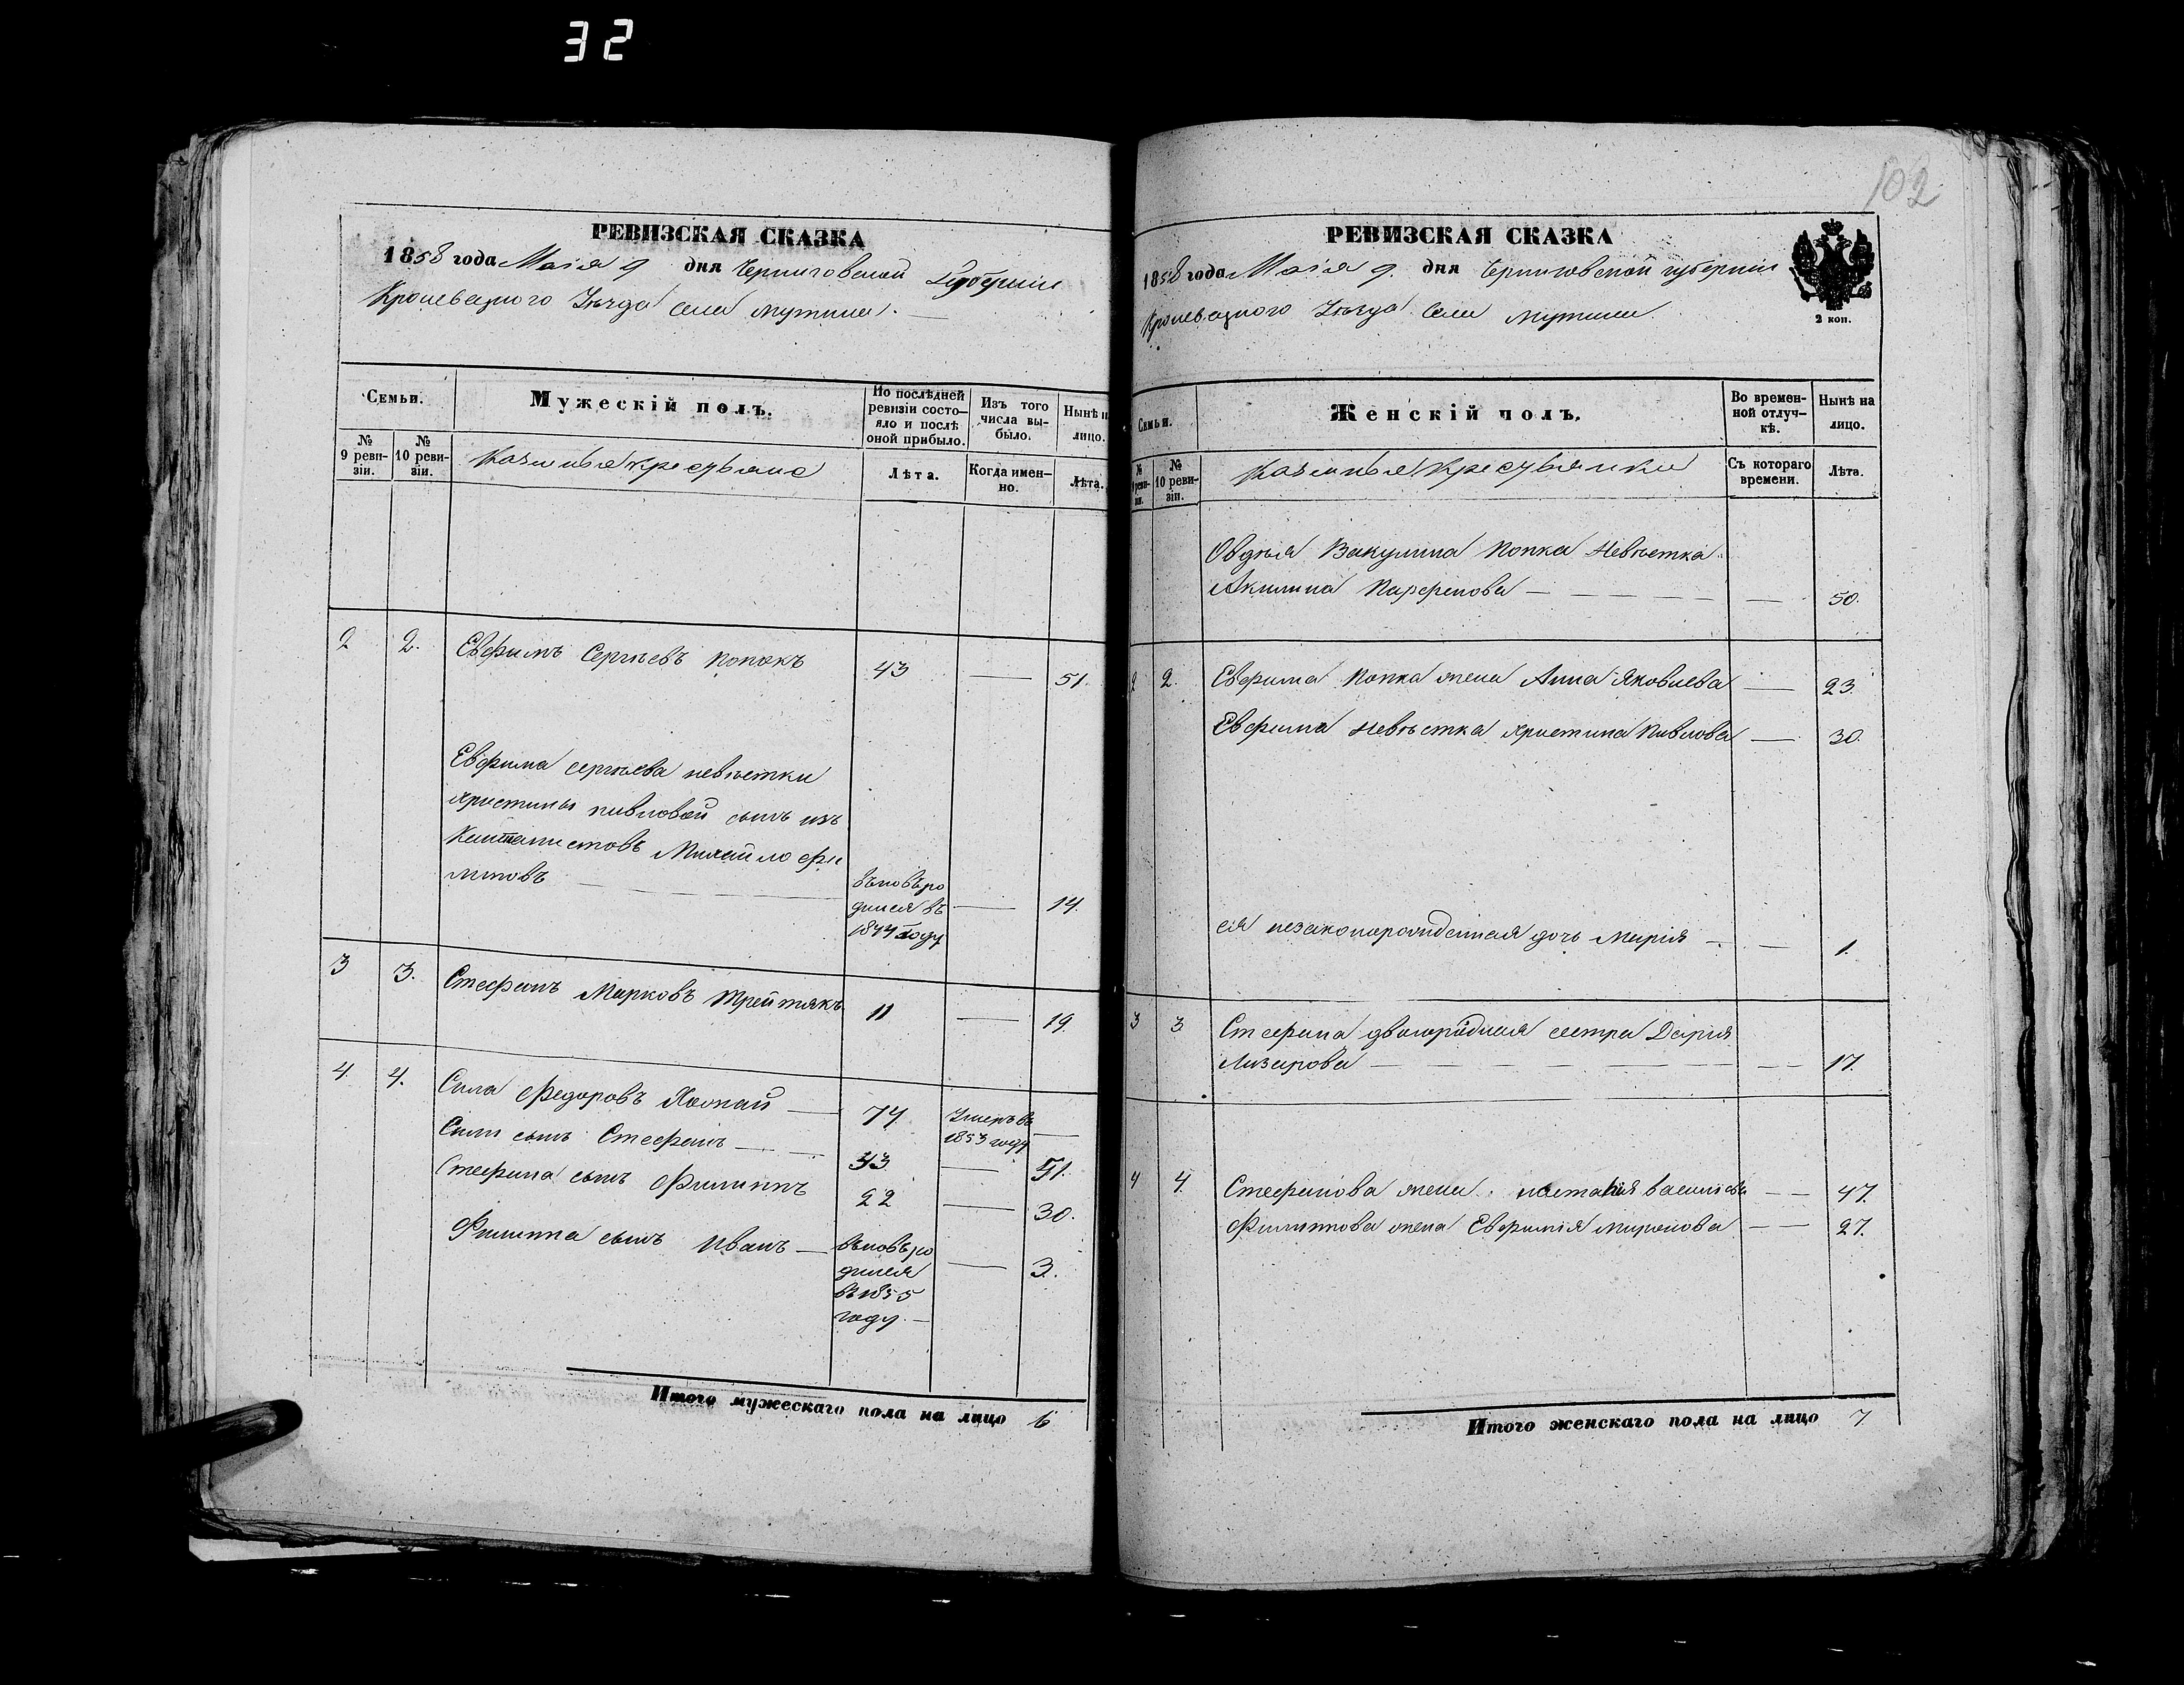 32
102
РЕВИЗСКАЯ СКАЗКА
1858 года Маія 9 дня Черниговской Губерніи
Кролевецкого Уѣзда Села Мутина.
Семьи.
Мужескій полъ.
По послѣдней ревизіи состо-
яло и послѣ
оной прибыло.
Изъ того
числа вы-
было.
Нынѣ н
лицо.
№
9 реви-
зіи.
№
10 реви-
зіи.
Казенныя крестьяне
Лѣта.
Когда имен-
но.
Лѣта.
2 2. Евфимъ Сергѣевъ Попокъ 43 — 51.
Евфима Сергѣева невѣстки
Христины Павловой сынъ изъ
Кантонистовъ Михайло Фи
липовъ —
вновь ро
дился въ
1844 году
— 14.
3 3. Стефанъ Марковъ Третякъ 11 — 19.
4. 4. Сила Федоровъ — 74. Умеръ въ
1853 году —
Силы сынъ Стефанъ — 43 — 51.
Стефана сынъ Филиппъ 22 — 30.
Филиппа сынъ Иванъ — вновь ро
дился
въ 1855
году. — — 3.
Итого мужескаго пола на лицо 6
РЕВИЗСКАЯ СКАЗКА
1858 года Маія 9. дня Черниговской губерніи
Кролевецкого Уѣзда Села Мутина.
2 коп.
Семьи.
Женскій полъ.
Во времен-
ной отлуч-
кѣ.
Нынѣ на
лицо.
№
9 реви-
зіи.
№
10 реви-
зіи.
Казенныя Крестьянки
Съ котораго
времени.
Лѣта.
Овдѣя Вакулина Попка Невѣстка
Акилина Парфенова — — 50.
2 2. Евфима Попка жена Анна Яковлева — 23.
Евфима Невѣстка Христина Павлова — 30.
ея незаконорожденная дочь Марія — — 1.
3 3 Стефана двоюродная сестра Дарія
Лазарова — — 17.
4 4. Стефанова жена Наталія Василіева — 47.
Филиппова жена Евфимія Миронова — 27.
Итого женскаго пола на лицо 7.